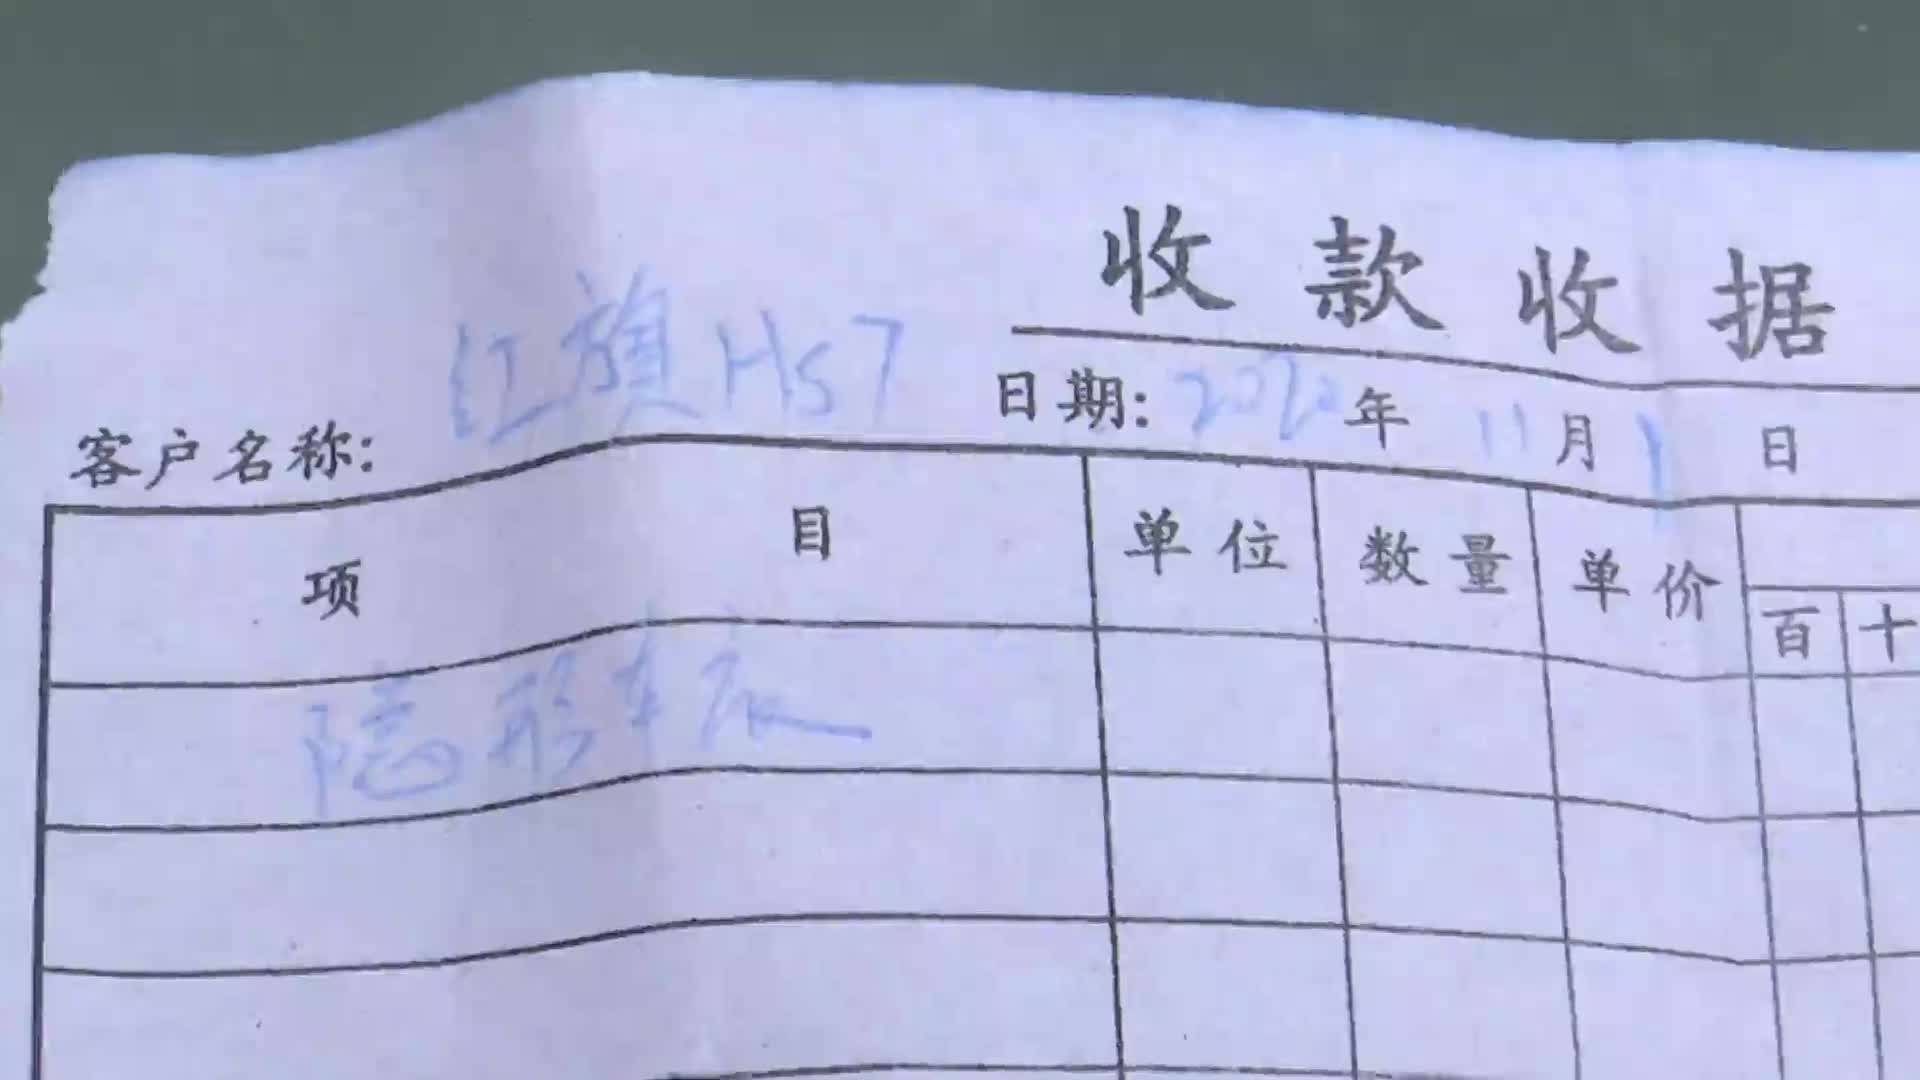 收款收据
客户名称: 红旗HS7 日期: 2020年11月1日
项目 单位 数量 单价
百十
隐形车衣